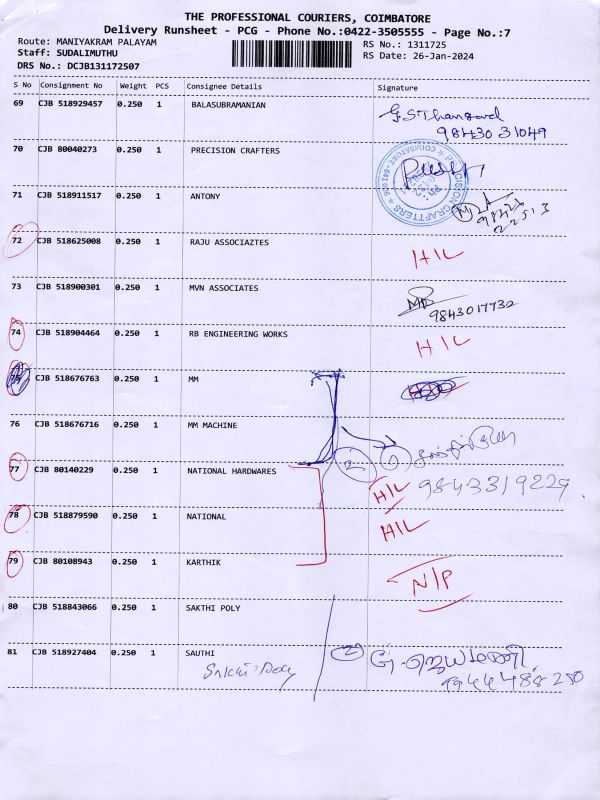 THE PROFESSIONAL COURIERS, COIMBATORE
Delivery Runsheet - PCG - Phone No.:0422-3505555 - Page No.:7
Route: MANIYAKRAM PALAYAM
Staff: SUDALIMUTHU
DRS No.: DCJB131172507
RS No.: 1311725
RS Date: 26-Jan-2024
S No Consignment No Weight PCS Consignee Details Signature
69 CJB 518929457 0.250 1 BALASUBRAMANIAN G.S.Thangavel
98430 31049
70 CJB 80040273 0.250 1 PRECISION CRAFTERS
71 CJB 518911517 0.250 1 ANTONY
22513
72 CJB 518625008 0.250 1 RAJU ASSOCIAZTES H/L
73 CJB 518900301 0.250 1 MVN ASSOCIATES
9843017732
74 CJB 518904464 0.250 1 RB ENGINEERING WORKS H/L
75 CJB 518676763 0.250 1 MM
76 CJB 518676716 0.250 1 MM MACHINE
2
77 CJB 80140229 0.250 1 NATIONAL HARDWARES H/L 9843319229
78 CJB 518879590 0.250 1 NATIONAL H/L
79 CJB 80108943 0.250 1 KARTHIK N/P
80 CJB 518843066 0.250 1 SAKTHI POLY
81 CJB 518927404 0.250 1 SAUTHI 2 G. ஜெயமணி
Sakthi Poly 9944488250